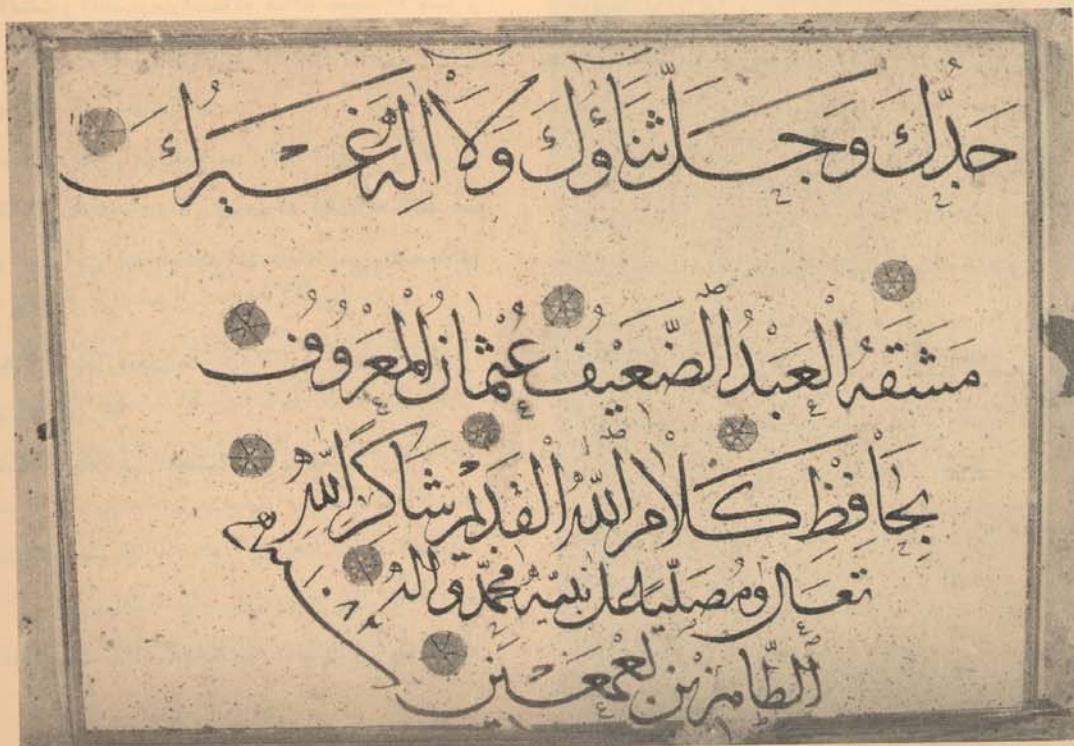 جَدُّكَ وَجَلَّ ثَنَاؤُكَ وَلَا إِلٰهَ غَيْرُكَ
مَشَقَهُ الْعَبْدُ الضَّعِيفُ عُثْمَانُ الْمَعْرُوفُ
بِحَافِظِ كَلَامِ اللهِ الْقَدِيمِ شَاكِرًا لِلّٰهِ
تعالى ومصليا على نبيه محمد وآله
الطاهرين أجمعين